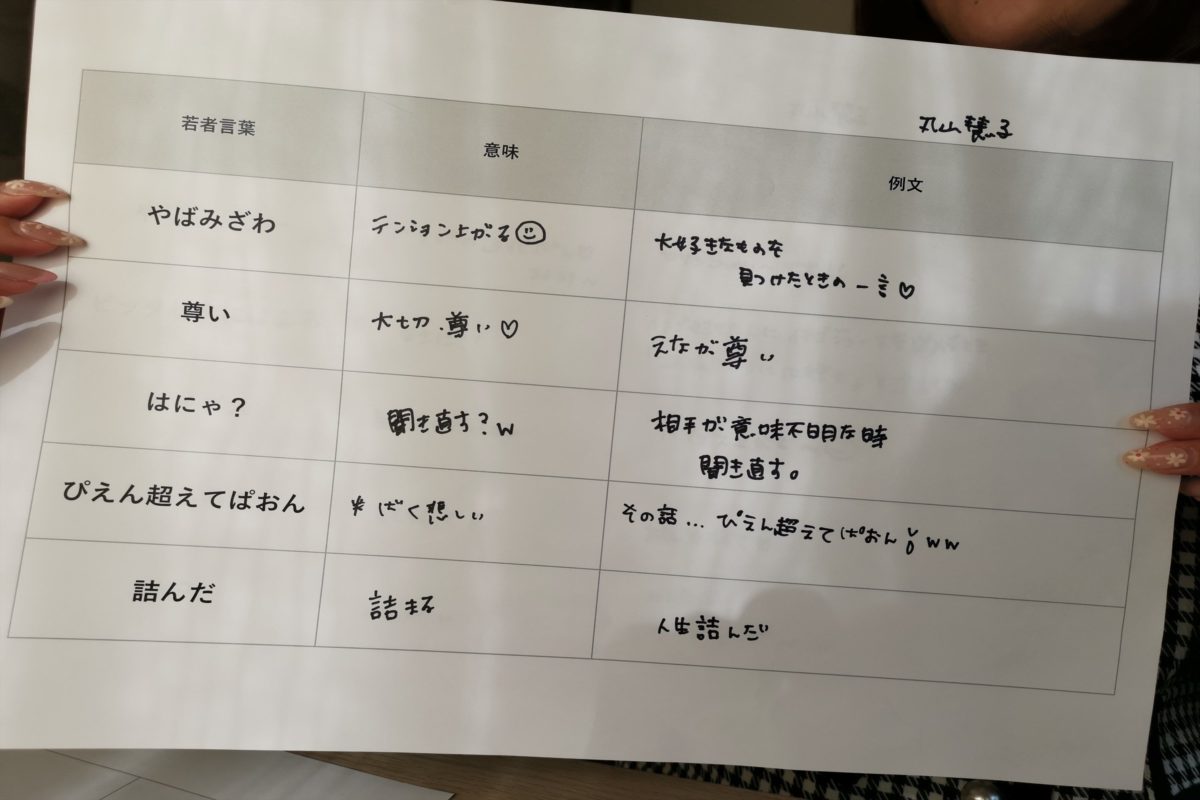 丸山穂る
若者言葉
意味
例文
やばみざわ
テンション上がる☺
大好きなものを
見つけたときの一言♡
尊い
大切.尊い♡
えなが尊い
はにゃ？
聞き直す?w
相手が意味不明な時
聞き直す。
ぴえん超えてぱおん
*ばく悲しい
その話...ぴえん超えてぱおん ww
詰んだ
詰まる
人生詰んだ